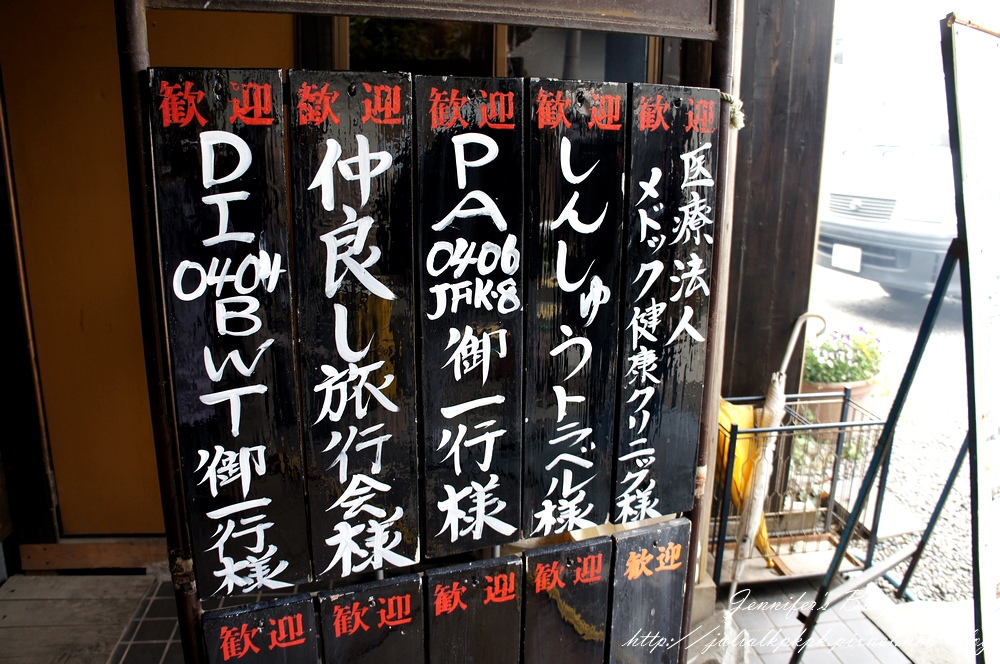 歓迎
医療法人
メドック健康クリニック様
歓迎
しんしゅうトラベル様
歓迎
PA
0406
JFK-8
御一行様
歓迎
仲良し旅行会様
歓迎
DI
0404
BWT
御一行様
歓迎
歓迎
歓迎
歓迎
歓迎
Jennifer's